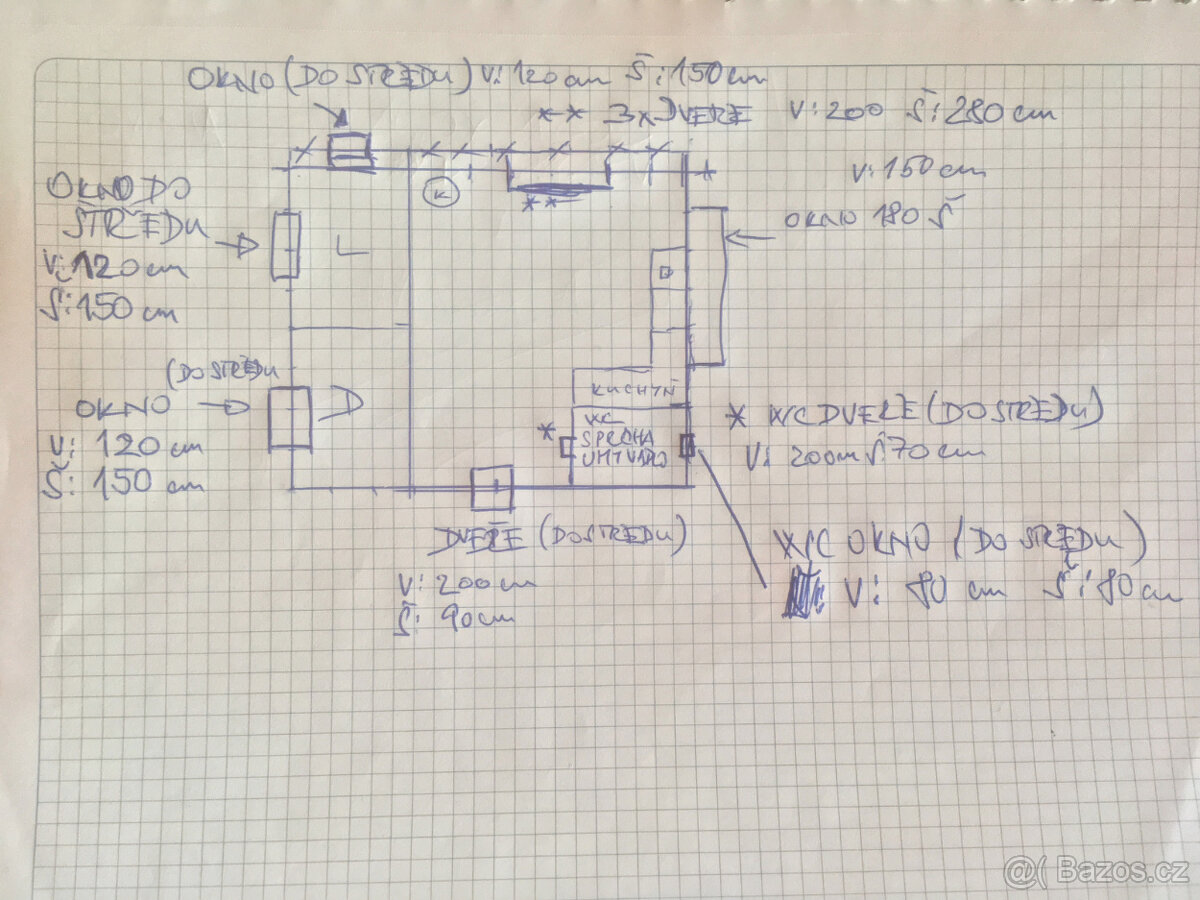 OKNO (DO STŘEDU) V: 120 cm Š: 150 cm
** 3x DVEŘE V: 200 Š: 280 cm
V: 150 cm
OKNO 180 Š
OKNO DO
STŘEDU
V: 120 cm
Š: 150 cm
K
**
L
(DO STŘEDU
OKNO
V: 120 cm
Š: 150 cm
D
KUCHYŇ
WC
SPRCHA
UMYVADLO
*
* WC DVEŘE (DO STŘEDU)
V: 200cm Š: 70 cm
DVEŘE (DO STŘEDU)
V: 200 cm
Š: 90 cm
WC OKNO (DO STŘEDU)
V: 80 cm Š: 80 cm
@( Bazos.cz